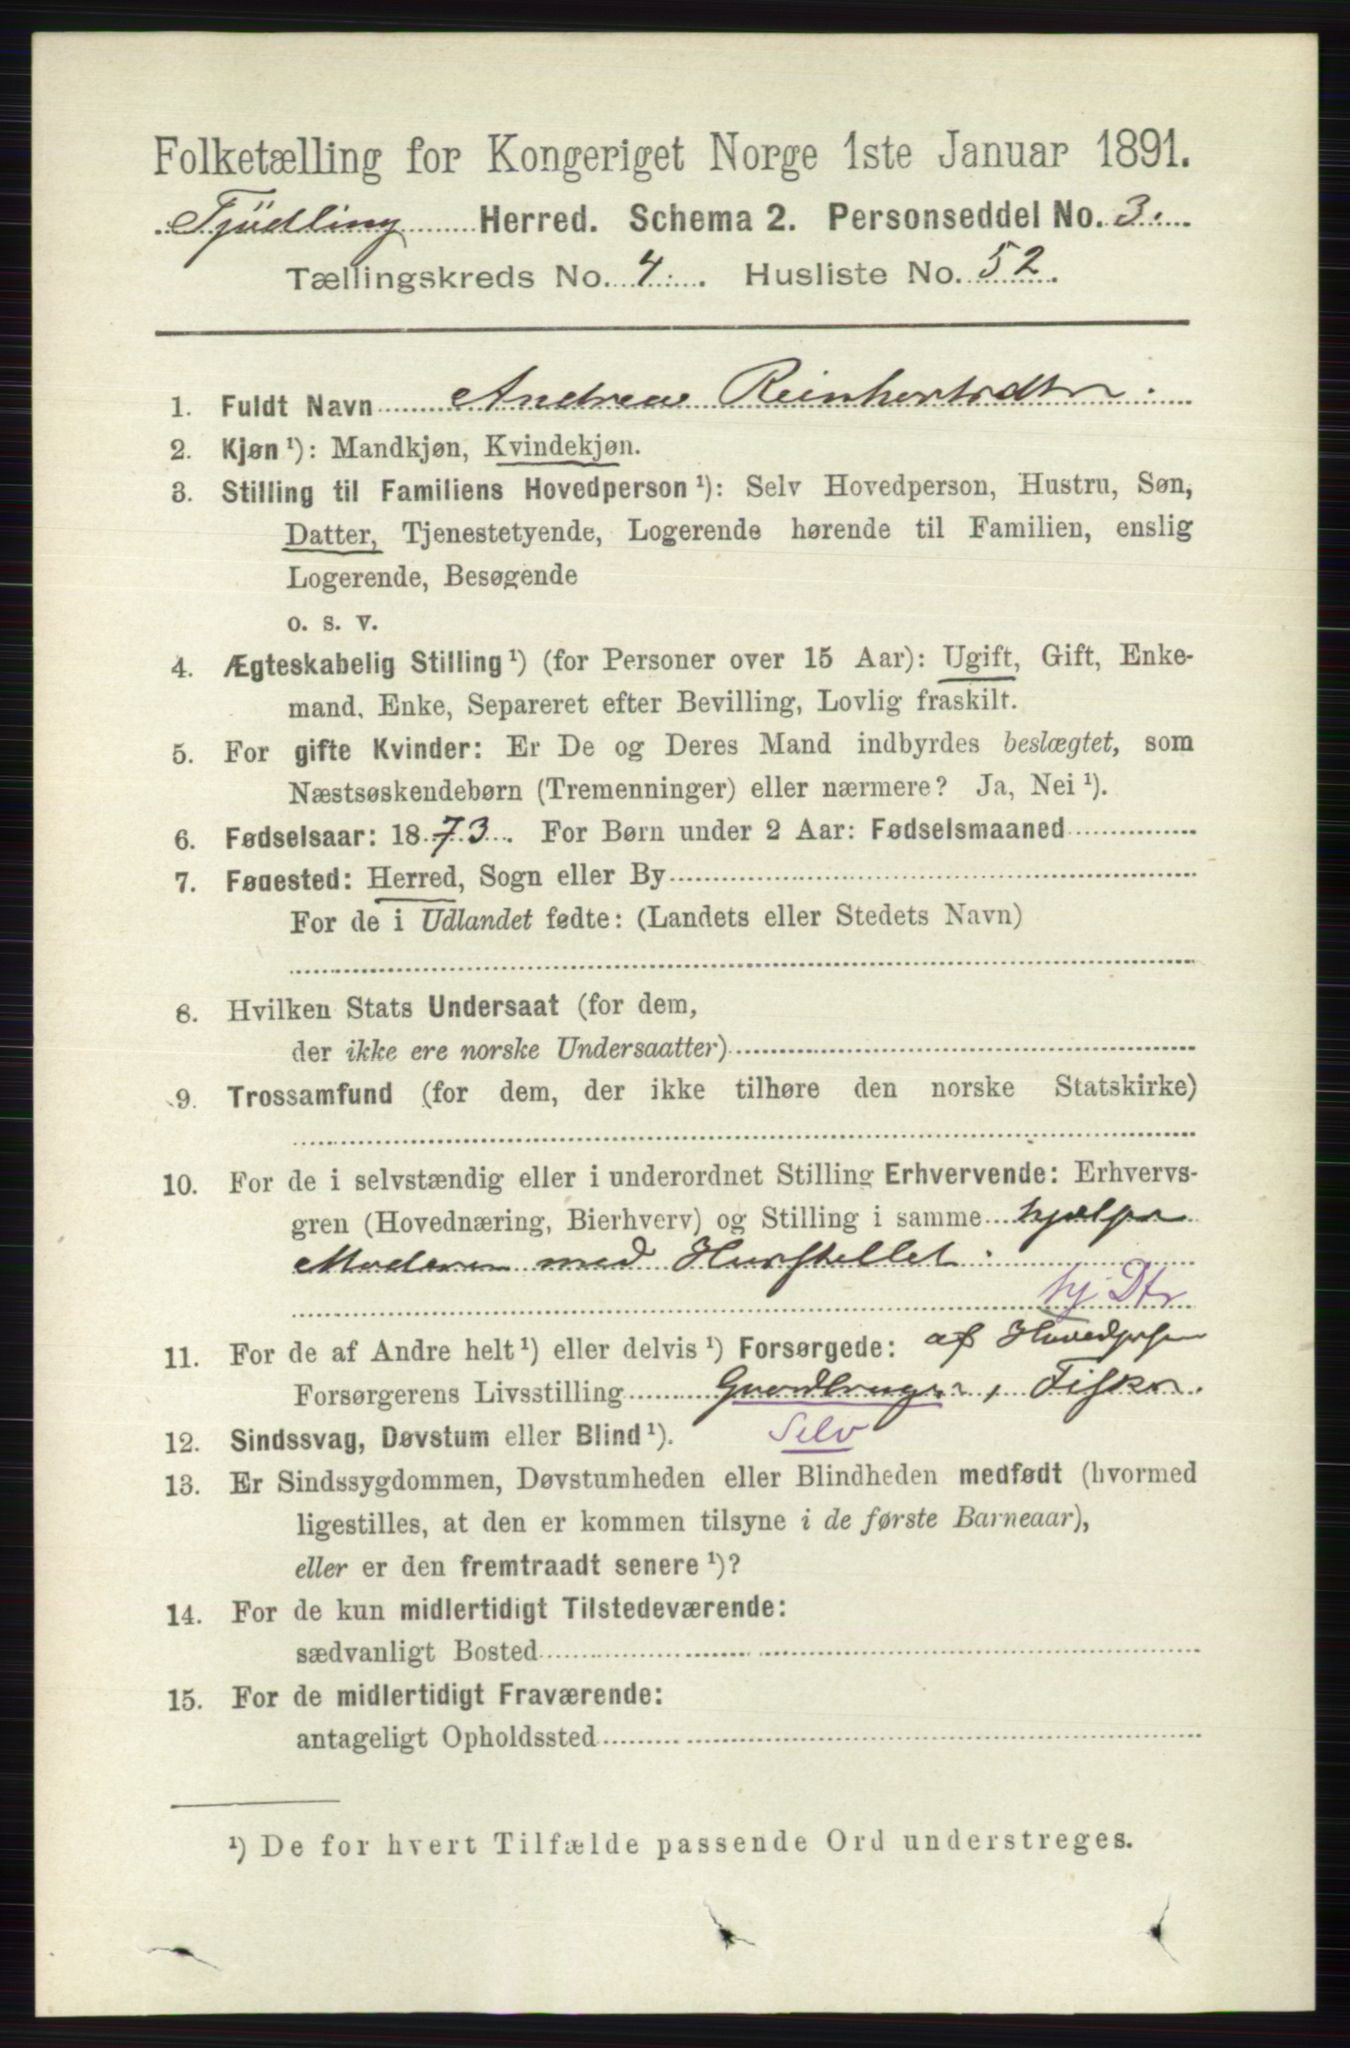 Folketælling for Kongeriget Norge 1ste Januar 1891.
Tjüdling Herred. Schema 2. Personseddel No. 3.
Tællingskreds No. 4. Husliste No. 52.
1. Fuldt Navn Andrea Reinhertsdtr
2. Kjøn ¹): Mandkjøn, Kvindekjøn.
3. Stilling til Familiens Hovedperson ¹): Selv Hovedperson, Hustru, Søn,
Datter, Tjenestetyende, Logerende hørende til Familien, enslig
Logerende, Besøgende
o. s. v.
4. Ægteskabelig Stilling ¹) (for Personer over 15 Aar): Ugift, Gift, Enke-
mand, Enke, Separeret efter Bevilling, Lovlig fraskilt.
5. For gifte Kvinder: Er De og Deres Mand indbyrdes beslægtet, som
Næstsøskendebørn (Tremenninger) eller nærmere? Ja, Nei ¹).
6. Fødselsaar: 1873. For Børn under 2 Aar: Fødselsmaaned
7. Fødested: Herred, Sogn eller By
For de i Udlandet fødte: (Landets eller Stedets Navn)
8. Hvilken Stats Undersaat (for dem,
der ikke ere norske Undersaatter)
9. Trossamfund (for dem, der ikke tilhøre den norske Statskirke)
10. For de i selvstændig eller i underordnet Stilling Erhvervende: Erhvervs-
gren (Hovednæring, Bierhverv) og Stilling i samme hjelper
Moderen med Husstellet.
hj. Dtr
11. For de af Andre helt ¹) eller delvis ¹) Forsørgede: af Hovedpersn
Forsørgerens Livsstilling Gaardbruger, Fisker.
12. Sindssvag, Døvstum eller Blind ¹). Selv
13. Er Sindssygdommen, Døvstumheden eller Blindheden medfødt (hvormed
ligestilles, at den er kommen tilsyne i de første Barneaar),
eller er den fremtraadt senere ¹)?
14. For de kun midlertidigt Tilstedeværende:
sædvanligt Bosted
15. For de midlertidigt Fraværende:
antageligt Opholdssted
¹) De for hvert Tilfælde passende Ord understreges.